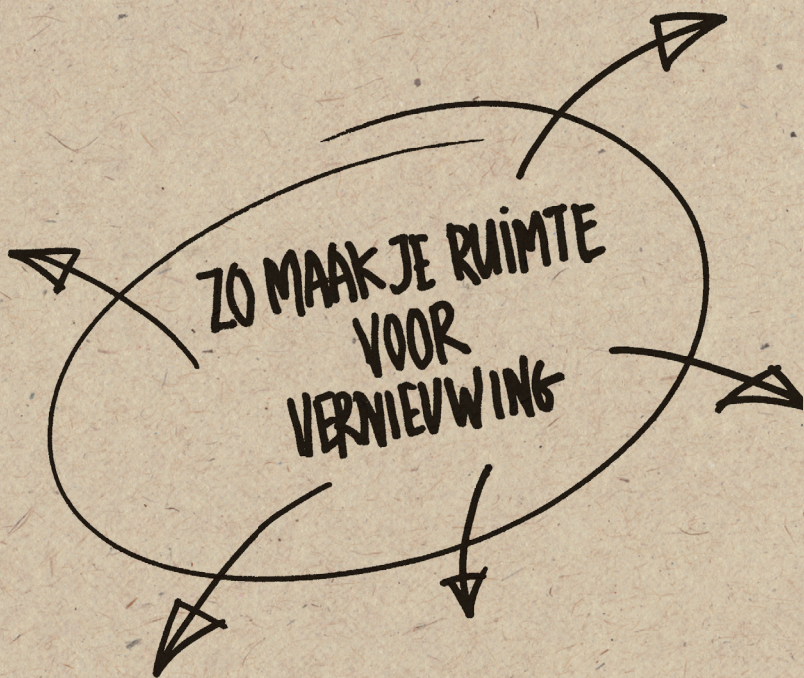 ZO MAAK JE RUIMTE
VOOR
VERNIEUWING